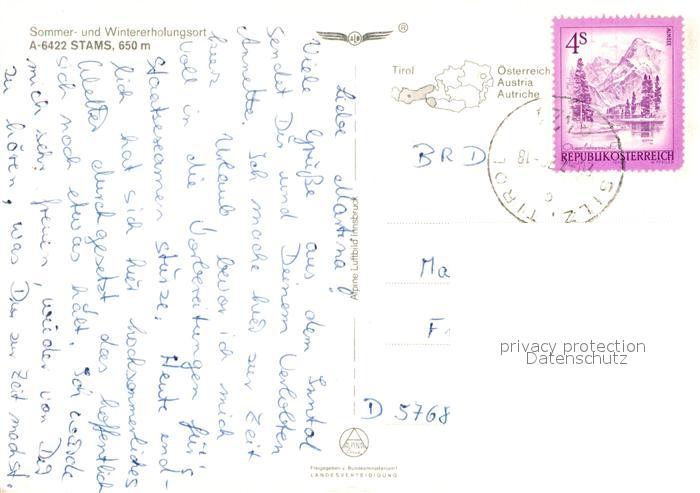 Sommer- und Wintererholungsort
A-6422 STAMS, 650 m
®
Liebe Martina!
Viele Grüße aus dem Inntal
sendet Dir und Deinem Verlobten
Annette. Ich mache hier zur Zeit
hier Urlaub bevor ich mich
voll in die Vorbereitungen für's
Staatsexamen stürze. Heute end-
lich hat sich hier hochsommerliches
Wetter durchgesetzt, das hoffentlich
sich noch etwas hält. Ich würde
mich sehr freuen, wieder von Dir
zu hören, was Du zur Zeit machst.
Alpine Luftbild Innsbruck
Tirol
Österreich
Austria
Autriche
4s
ALMSEE
Oberösterreich
REPUBLIK ÖSTERREICH
SILZ, TIROL
-18
BRD
Ma
F
D 5768
privacy protection
Datenschutz
ALPINA
Freigegeben v. Bundesministerium f.
LANDESVERTEIDIGUNG